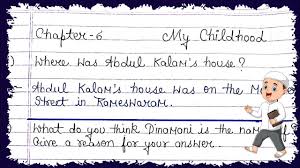 Chapter-6 My Childhood
Where was Abdul Kalam's house?
Abdul Kalam's house was on the
Street in Rameswaram.
What do you think Dinamani is the
Give a reason for your answer.